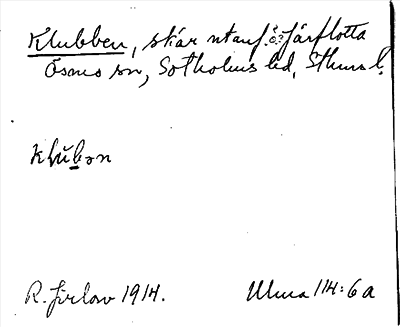 Klubben, skär utanf. ö. Järflotta
Ösmo sn, Sotholms hd, Sthms l.
klŭbən
R. Jirlow 1914.
Ulma 114:6a